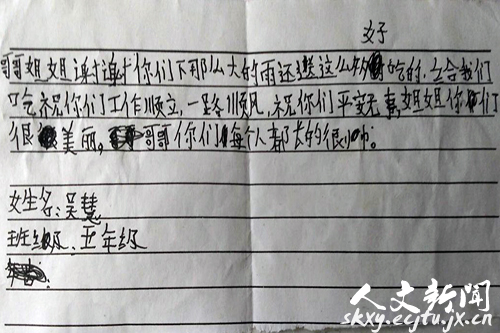 好
哥哥姐姐谢谢你们下那么大的雨还送这么多吃的,给我们
吃祝你们工作顺立,一路顺风,祝你们平安无事,姐姐你们
很美丽,哥哥你们每个人都长的很帅。
女生名:吴慧
班级:五年级
人文新闻
skxy.ecjtu.jx.cn